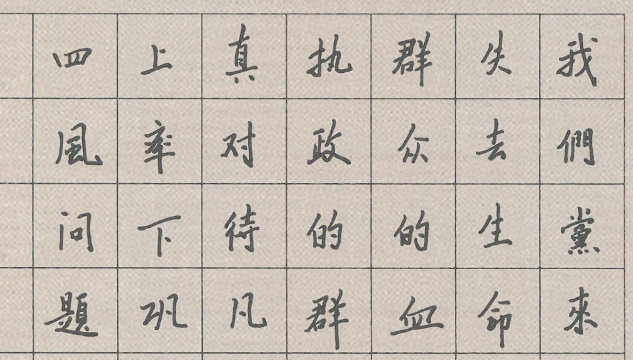 我們黨來
失去生命
群众的血
执政的群
真对待凡
上率下巩
四風问題